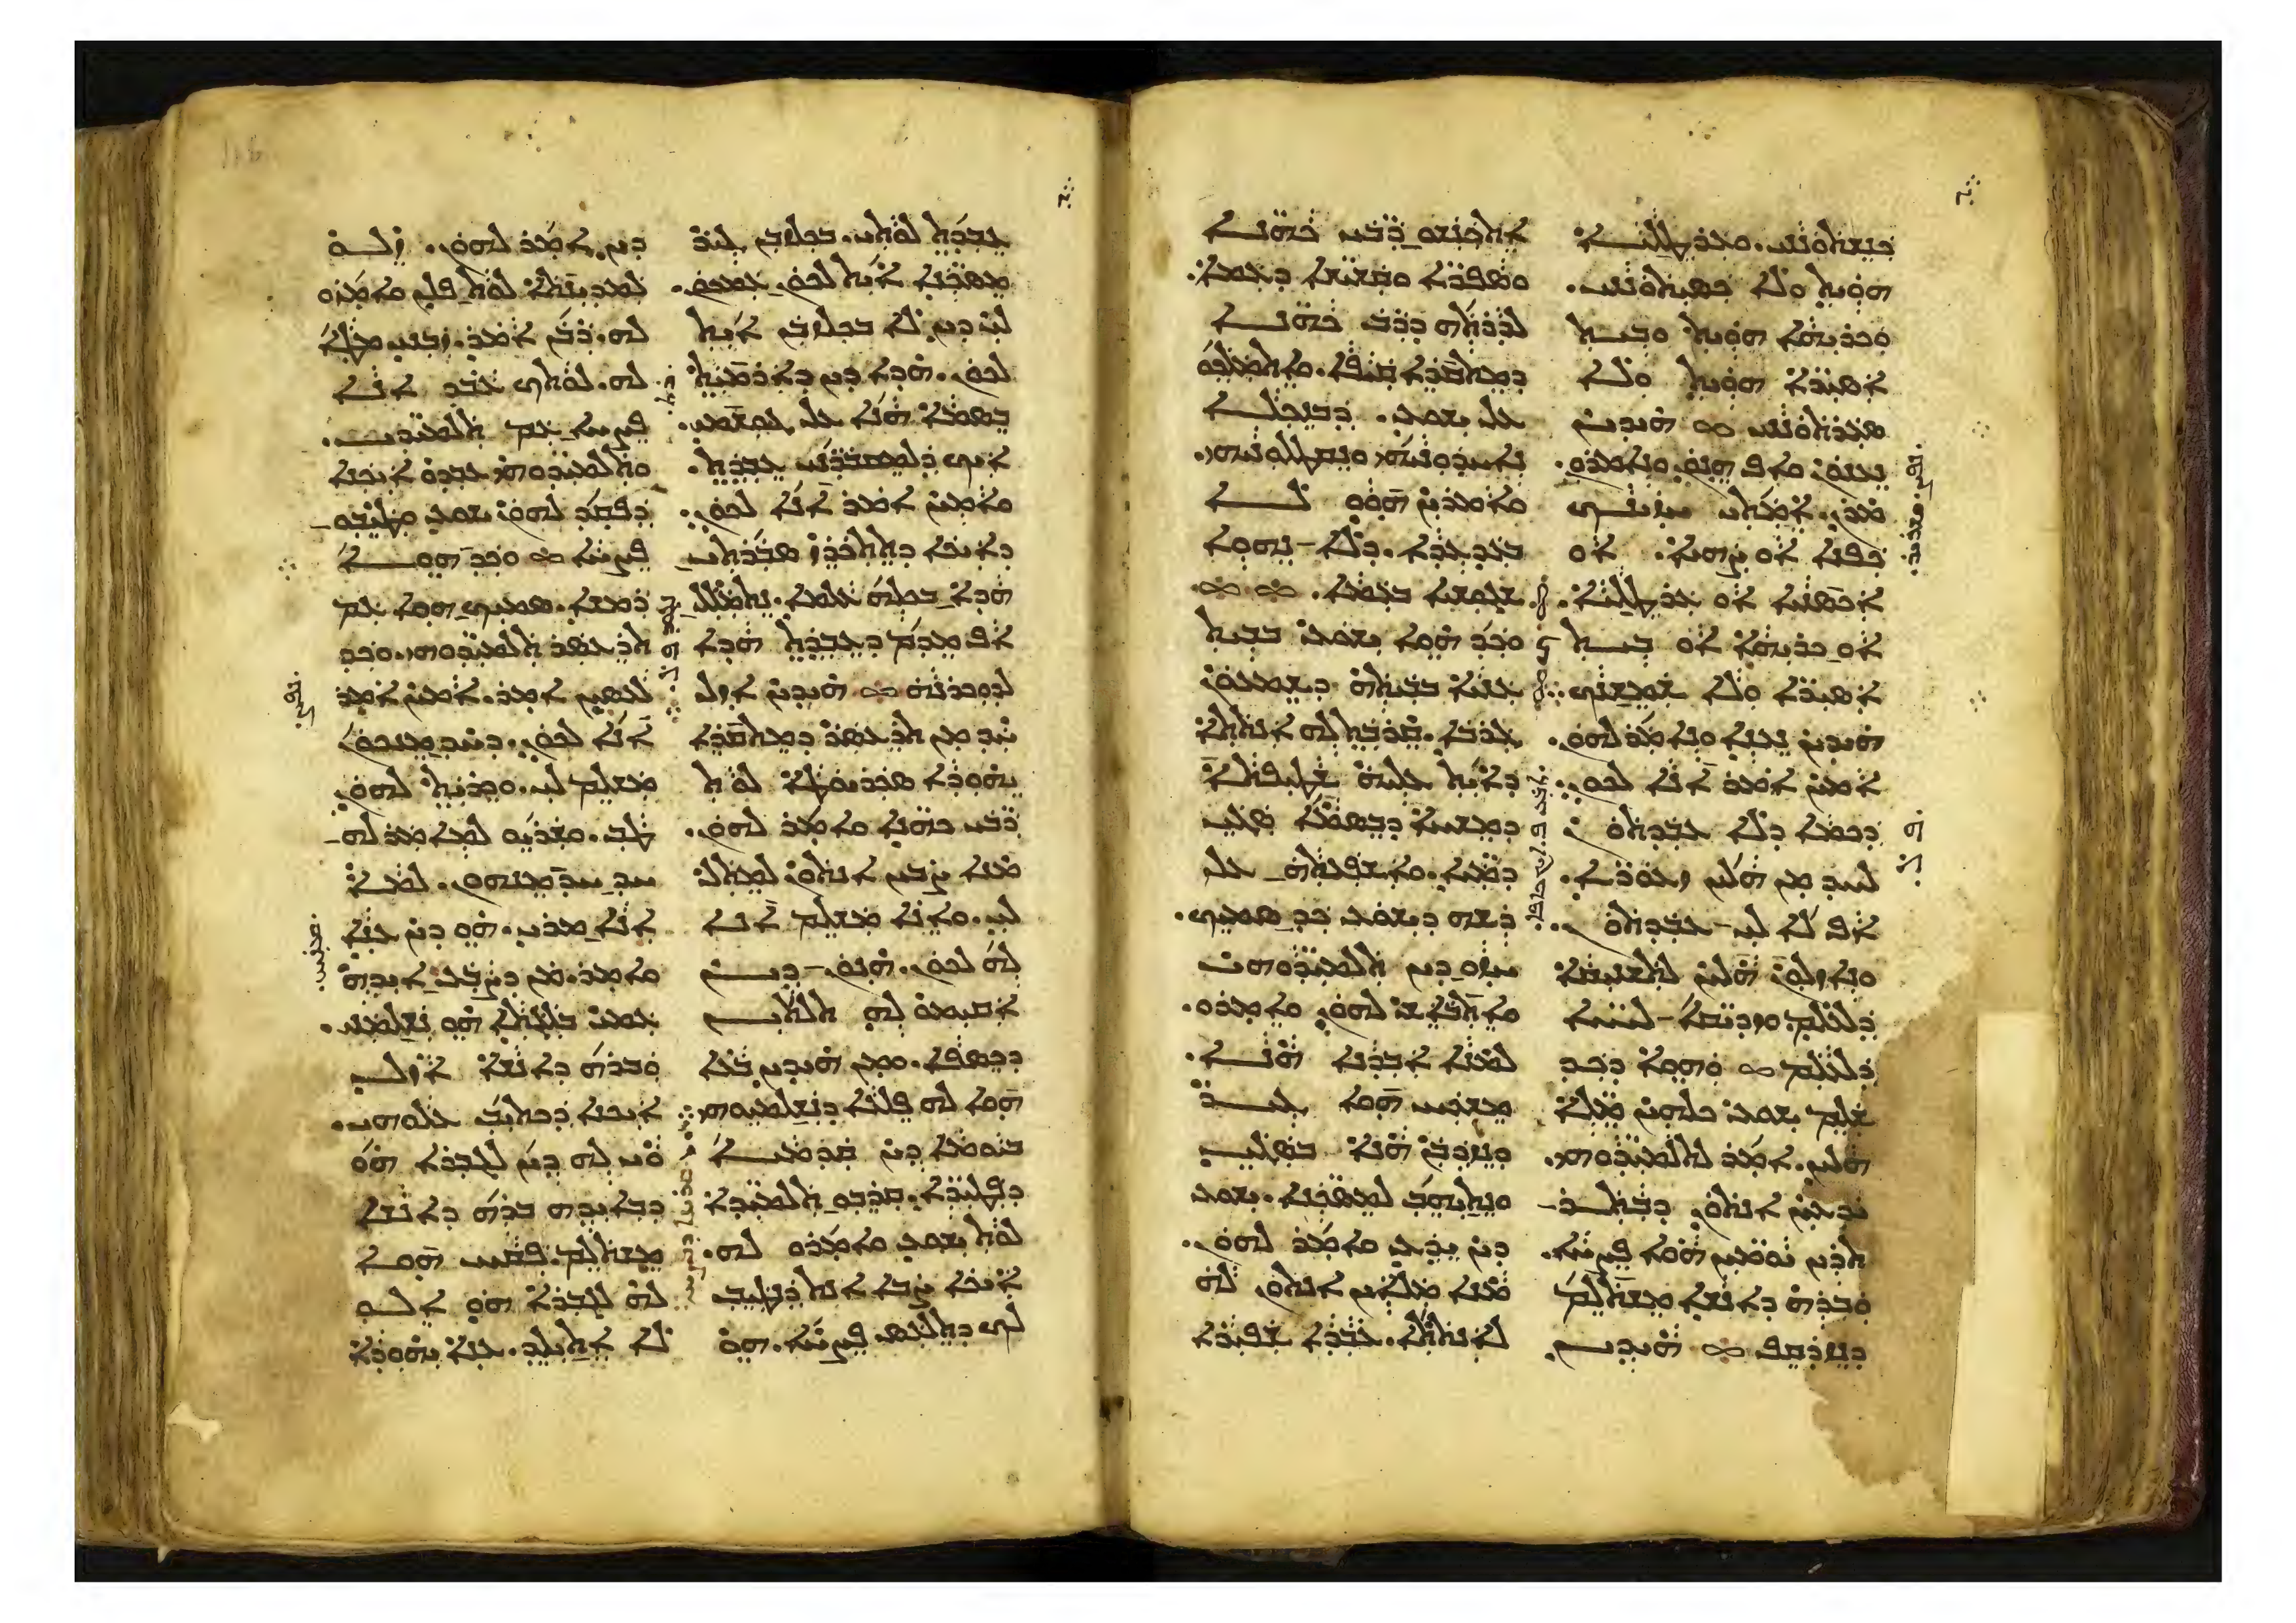 ܟܢܫܬܘܢܢܝ. ܘܥܪܛܠܝܐ
ܗܘܝܬ ܘܠܐ ܟܣܝܬܘܢܢܝ.
ܘܟܪܝܗܐ ܗܘܝܬ ܘܒܝܬ
ܐܣܝܪܐ ܗܘܝܬ ܘܠܐ
ܣܥܪܬܘܢܢܝ ܀ ܗܝܕܝܢ
ܢܥܢܘܢ ܘܐܦ ܗܢܘܢ. ܘܢܐܡܪܘܢ.
ܡܪܢ. ܐܡܬܝ ܚܙܝܢܟ
ܟܦܢܐ ܐܘ ܨܗܝܐ. ܐܘ
ܐܟܣܢܝܐ ܐܘ ܥܪܛܠܝܐ.
ܐܘ ܟܪܝܗܐ ܐܘ ܒܝܬ
ܐܣܝܪܐ ܘܠܐ ܫܡܫܢܟ.
ܗܝܕܝܢ ܢܥܢܐ ܘܢܐܡܪ ܠܗܘܢ.
ܐܡܝܢ ܐܡܪ ܐܢܐ ܠܟܘܢ.
ܕܟܡܐ ܕܠܐ ܥܒܕܬܘܢ
ܠܚܕ ܡܢ ܗܠܝܢ ܙܥܘܪܐ.
ܐܦ ܠܐ ܠܝ ܥܒܕܬܘܢ.
ܘܢܐܙܠܘܢ ܗܠܝܢ ܠܬܫܢܝܩܐ
ܕܠܥܠܡ ܘܙܕܝܩܐ ܠܚܝܐ
ܕܠܥܠܡ ܀ ܘܗܘܐ ܕܟܕ
ܫܠܡ ܝܫܘܥ ܟܠܗܝܢ ܡܠܐ
ܗܠܝܢ. ܐܡܪ ܠܬܠܡܝܕܘܗܝ.
ܝܕܥܝܢ ܐܢܬܘܢ ܕܒܬܪ
ܬܪܝܢ ܝܘܡܝܢ ܗܘܐ ܦܨܚܐ.
ܘܒܪܗ ܕܐܢܫܐ ܡܫܬܠܡ
ܕܢܙܕܩܦ ܀ ܗܝܕܝܢ
ܐܬܟܢܫܘ ܪܒܝ ܟܗܢܐ
ܘܣܦܪܐ ܘܩܫܝܫܐ ܕܥܡܐ.
ܠܕܪܬܗ ܕܪܒ ܟܗܢܐ
ܕܡܬܩܪܐ ܩܝܦܐ. ܘܐܬܡܠܟܘ
ܥܠ ܝܫܘܥ. ܕܒܢܟܠܐ
ܢܐܚܕܘܢܝܗܝ ܘܢܩܛܠܘܢܝܗܝ.
ܘܐܡܪܝܢ ܗܘܘ ܠܐ
ܒܥܕܥܕܐ. ܕܠܐ ܢܗܘܐ
ܫܓܘܫܝܐ ܒܥܡܐ. ܀ ܀
ܘܟܕ ܗܘܐ ܝܫܘܥ ܒܒܝܬ
ܥܢܝܐ ܒܒܝܬܗ ܕܫܡܥܘܢ
ܓܪܒܐ. ܩܪܒܬ ܠܗ ܐܢܬܬܐ
ܕܐܝܬ ܥܠܝܗ ܫܛܝܦܬܐ
ܕܡܫܚܐ ܕܒܣܡܐ ܣܓܝ
ܕܡܝܐ. ܘܐܫܦܥܬܗ ܥܠ
ܪܫܗ ܕܝܫܘܥ ܟܕ ܣܡܝܟ.
ܚܙܘ ܕܝܢ ܬܠܡܝܕܘܗܝ
ܘܐܬܒܐܫ ܠܗܘܢ. ܘܐܡܪܘ.
ܠܡܢܐ ܐܒܕܢܐ ܗܢܐ.
ܡܫܟܚ ܗܘܐ ܓܝܪ
ܕܢܙܕܒܢ ܗܢܐ ܒܣܓܝ
ܘܢܬܝܗܒ ܠܡܣܟܢܐ. ܝܫܘܥ
ܕܝܢ ܝܕܥ ܘܐܡܪ ܠܗܘܢ.
ܡܢܐ ܡܠܐܝܢ ܐܢܬܘܢ ܠܗ
ܠܐܢܬܬܐ. ܥܒܕܐ ܫܦܝܪܐ
ܥܒܕܬ ܠܘܬܝ. ܒܟܠܙܒܢ ܓܝܪ
ܡܣܟܢܐ ܐܝܬ ܠܟܘܢ ܥܡܟܘܢ.
ܠܝ ܕܝܢ ܠܐ ܒܟܠܙܒܢ ܐܝܬ
ܠܟܘܢ. ܗܕܐ ܕܝܢ ܕܐܪܡܝܬ
ܒܣܡܐ ܗܢܐ ܥܠ ܓܘܫܡܝ.
ܐܝܟ ܕܠܡܩܒܪܢܝ ܥܒܕܬ.
ܘܐܡܝܢ ܐܡܪ ܐܢܐ ܠܟܘܢ.
ܕܐܝܟܐ ܕܬܬܟܪܙ ܣܒܪܬܝ
ܗܕܐ ܒܟܠܗ ܥܠܡܐ. ܢܬܡܠܠ
ܐܦ ܡܕܡ ܕܥܒܕܬ ܗܕܐ
ܠܕܘܟܪܢܗ ܀ ܗܝܕܝܢ ܐܙܠ
ܚܕ ܡܢ ܬܪܥܣܪ ܕܡܬܩܪܐ
ܝܗܘܕܐ ܣܟܪܝܘܛܐ ܠܘܬ
ܪܒܝ ܟܗܢܐ ܘܐܡܪ ܠܗܘܢ.
ܡܢܐ ܨܒܝܢ ܐܢܬܘܢ ܠܡܬܠ
ܠܝ. ܘܐܢܐ ܡܫܠܡ ܐܢܐ
ܠܗ ܠܟܘܢ. ܗܢܘܢ ܕܝܢ
ܐܩܝܡܘ ܠܗ ܬܠܬܝܢ
ܕܟܣܦܐ. ܘܡܢ ܗܝܕܝܢ ܒܥܐ
ܗܘܐ ܠܗ ܦܠܥܐ ܕܢܫܠܡܝܘܗܝ
ܒܝܘܡܐ ܕܝܢ ܩܕܡܝܐ
ܕܦܛܝܪܐ. ܩܪܒܘ ܬܠܡܝܕܐ
ܠܘܬ ܝܫܘܥ ܘܐܡܪܘ ܠܗ.
ܐܝܟܐ ܨܒܐ ܐܢܬ ܕܢܛܝܒ
ܠܟ ܕܬܠܥܣ ܦܨܚܐ. ܗܘ
ܕܝܢ ܐܡܪ ܠܗܘܢ. ܙܠܘ
ܠܡܕܝܢܬܐ ܠܘܬ ܦܠܢ ܘܐܡܪܘ
ܠܗ. ܪܒܢ ܐܡܪ. ܙܒܢܝ ܡܛܐ
ܠܗ. ܠܘܬܟ ܥܒܕ ܐܢܐ
ܦܨܚܐ ܥܡ ܬܠܡܝܕܝ.
ܘܬܠܡܝܕܘܗܝ ܥܒܕܘ ܐܝܟܢܐ
ܕܦܩܕ ܠܗܘܢ ܝܫܘܥ ܘܛܝܒܘ
ܦܨܚܐ ܀ ܘܟܕ ܗܘܐ
ܪܡܫܐ. ܣܡܝܟ ܗܘܐ ܥܡ
ܬܪܥܣܪ ܬܠܡܝܕܘܗܝ. ܘܟܕ
ܠܥܣܝܢ ܐܡܪ. ܐܡܝܢ ܐܡܪ
ܐܢܐ ܠܟܘܢ. ܕܚܕ ܡܢܟܘܢ
ܡܫܠܡ ܠܝ. ܘܟܪܝܬ ܠܗܘܢ
ܛܒ. ܘܫܪܝܘ ܠܡܐܡܪ ܠܗ
ܚܕ ܚܕ ܡܢܗܘܢ. ܠܡܐ
ܐܢܐ ܡܪܝ. ܗܘ ܕܝܢ ܥܢܐ
ܘܐܡܪ. ܡܢ ܕܨܒܥ ܐܝܕܗ
ܥܡܝ ܒܠܓܬܐ ܗܘ ܢܫܠܡܢܝ.
ܘܒܪܗ ܕܐܢܫܐ ܐܙܠ
ܐܝܟܢܐ ܕܟܬܝܒ ܥܠܘܗܝ.
ܘܝ ܠܗ ܕܝܢ ܠܓܒܪܐ ܗܘ
ܕܒܐܝܕܗ ܒܪܗ ܕܐܢܫܐ
ܡܫܬܠܡ. ܦܩܚ ܗܘܐ
ܠܗ ܠܓܒܪܐ ܗܘ ܐܠܘ
ܠܐ ܐܬܝܠܕ. ܥܢܐ ܝܗܘܕܐ